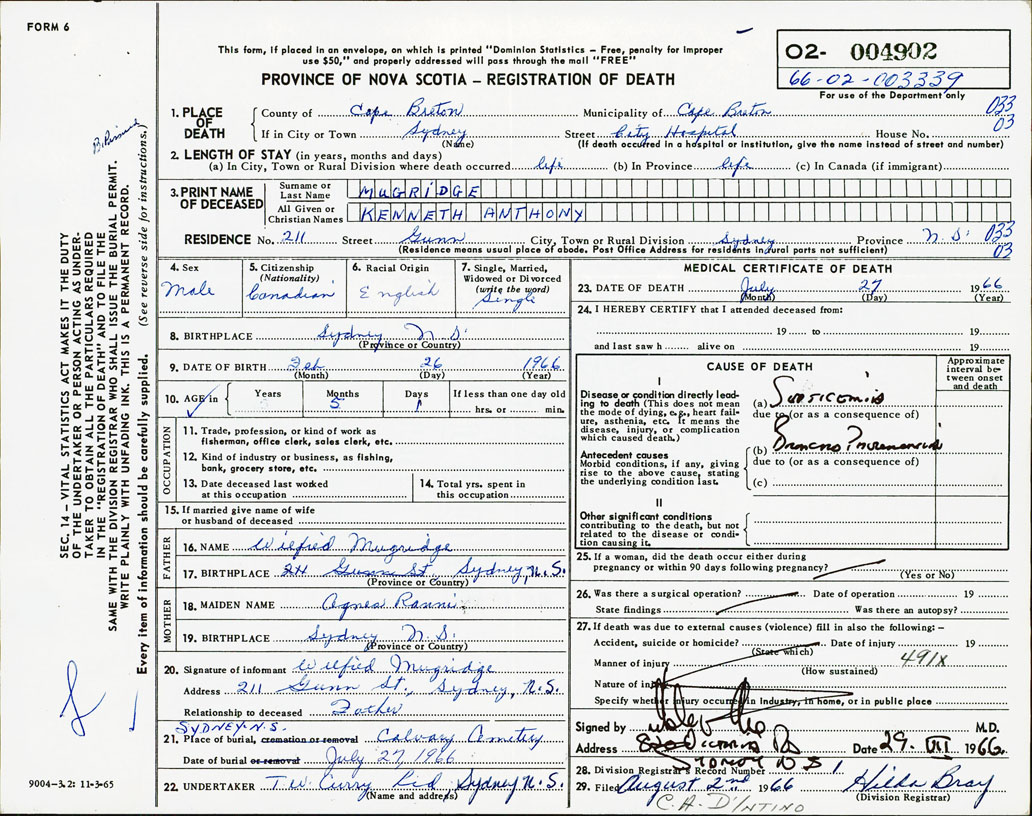 FORM 6
This form, if placed in an envelope, on which is printed "Dominion Statistics – Free, penalty for improper
use $50," and properly addressed will pass through the mail "FREE"
PROVINCE OF NOVA SCOTIA – REGISTRATION OF DEATH
02- 004902
66-02-003339
For use of the Department only
1. PLACE OF DEATH
County of Cape Breton Municipality of Cape Breton 033
03
If in City or Town Sydney Street City Hospital House No.
(Name) (If death occurred in a hospital or institution, give the name instead of street and number)
2. LENGTH OF STAY (in years, months and days)
(a) In City, Town or Rural Division where death occurred life (b) In Province life (c) In Canada (if immigrant)
3. PRINT NAME OF DECEASED
Surname or Last Name MUGRIDGE
All Given or Christian Names KENNETH ANTHONY
RESIDENCE No. 211 Street Gunn City, Town or Rural Division Sydney Province N.S. 033
03
(Residence means usual place of abode. Post Office Address for residents in rural parts not sufficient)
4. Sex
Male
5. Citizenship
(Nationality)
Canadian
6. Racial Origin
English
7. Single, Married,
Widowed or Divorced
(write the word)
Single
8. BIRTHPLACE Sydney N.S.
(Province or Country)
9. DATE OF BIRTH Feb 26 1966
(Month) (Day) (Year)
10. AGE in Years Months Days If less than one day old
5 1 hrs. or min.
OCCUPATION
11. Trade, profession, or kind of work as
fisherman, office clerk, sales clerk, etc.
12. Kind of industry or business, as fishing,
bank, grocery store, etc.
13. Date deceased last worked
at this occupation
14. Total yrs. spent in
this occupation
15. If married give name of wife
or husband of deceased
FATHER
16. NAME Wilfred Mugridge
17. BIRTHPLACE 24 Gunn St Sydney, N.S.
(Province or Country)
MOTHER
18. MAIDEN NAME Agnes Ranni
19. BIRTHPLACE Sydney N.S.
(Province or Country)
20. Signature of informant Wilfred Mugridge
Address 211 Gunn St., Sydney, N.S.
Relationship to deceased Father
SYDNEY-N.S.
21. Place of burial, cremation or removal Calvary Cemetery
Date of burial or removal July 27, 1966
22. UNDERTAKER T.W. Curry Ltd, Sydney N.S.
(Name and address)
MEDICAL CERTIFICATE OF DEATH
23. DATE OF DEATH July 27 1966
(Month) (Day) (Year)
24. I HEREBY CERTIFY that I attended deceased from:
19 to 19
and last saw h alive on 19
CAUSE OF DEATH
Approximate
interval be-
tween onset
and death
I
Disease or condition directly lead-
ing to death (This does not mean
the mode of dying, e.g., heart fail-
ure, asthenia, etc. It means the
disease, injury, or complication
which caused death.)
(a) Septicemia
due to (or as a consequence of)
Antecedent causes
Morbid conditions, if any, giving
rise to the above cause, stating
the underlying condition last.
(b) Broncho Pneumonia
due to (or as a consequence of)
(c)
II
Other significant conditions
contributing to the death, but not
related to the disease or condi-
tion causing it.
25. If a woman, did the death occur either during
pregnancy or within 90 days following pregnancy?
(Yes or No)
26. Was there a surgical operation? Date of operation 19
State findings Was there an autopsy?
27. If death was due to external causes (violence) fill in also the following:–
Accident, suicide or homicide? Date of injury 19
(State which)
Manner of injury 491X
(How sustained)
Nature of injury
Specify whether injury occurred in industry, in home, or in public place
Signed by M.D.
Address Victoria Rd Date 29. VII 1966
Sydney N S
28. Division Registrar's Record Number 1
29. Filed August 2nd 1966 Hilda Bray
(Division Registrar)
C.A. D'INTINO
SEC. 14 – VITAL STATISTICS ACT MAKES IT THE DUTY
OF THE UNDERTAKER OR PERSON ACTING AS UNDER-
TAKER TO OBTAIN ALL THE PARTICULARS REQUIRED
IN THE "REGISTRATION OF DEATH" AND TO FILE THE
SAME WITH THE DIVISION REGISTRAR WHO SHALL ISSUE THE BURIAL PERMIT.
WRITE PLAINLY WITH UNFADING INK. THIS IS A PERMANENT RECORD.
Every item of information should be carefully supplied. (See reverse side for instructions.)
9004-3.2: 11-3-65